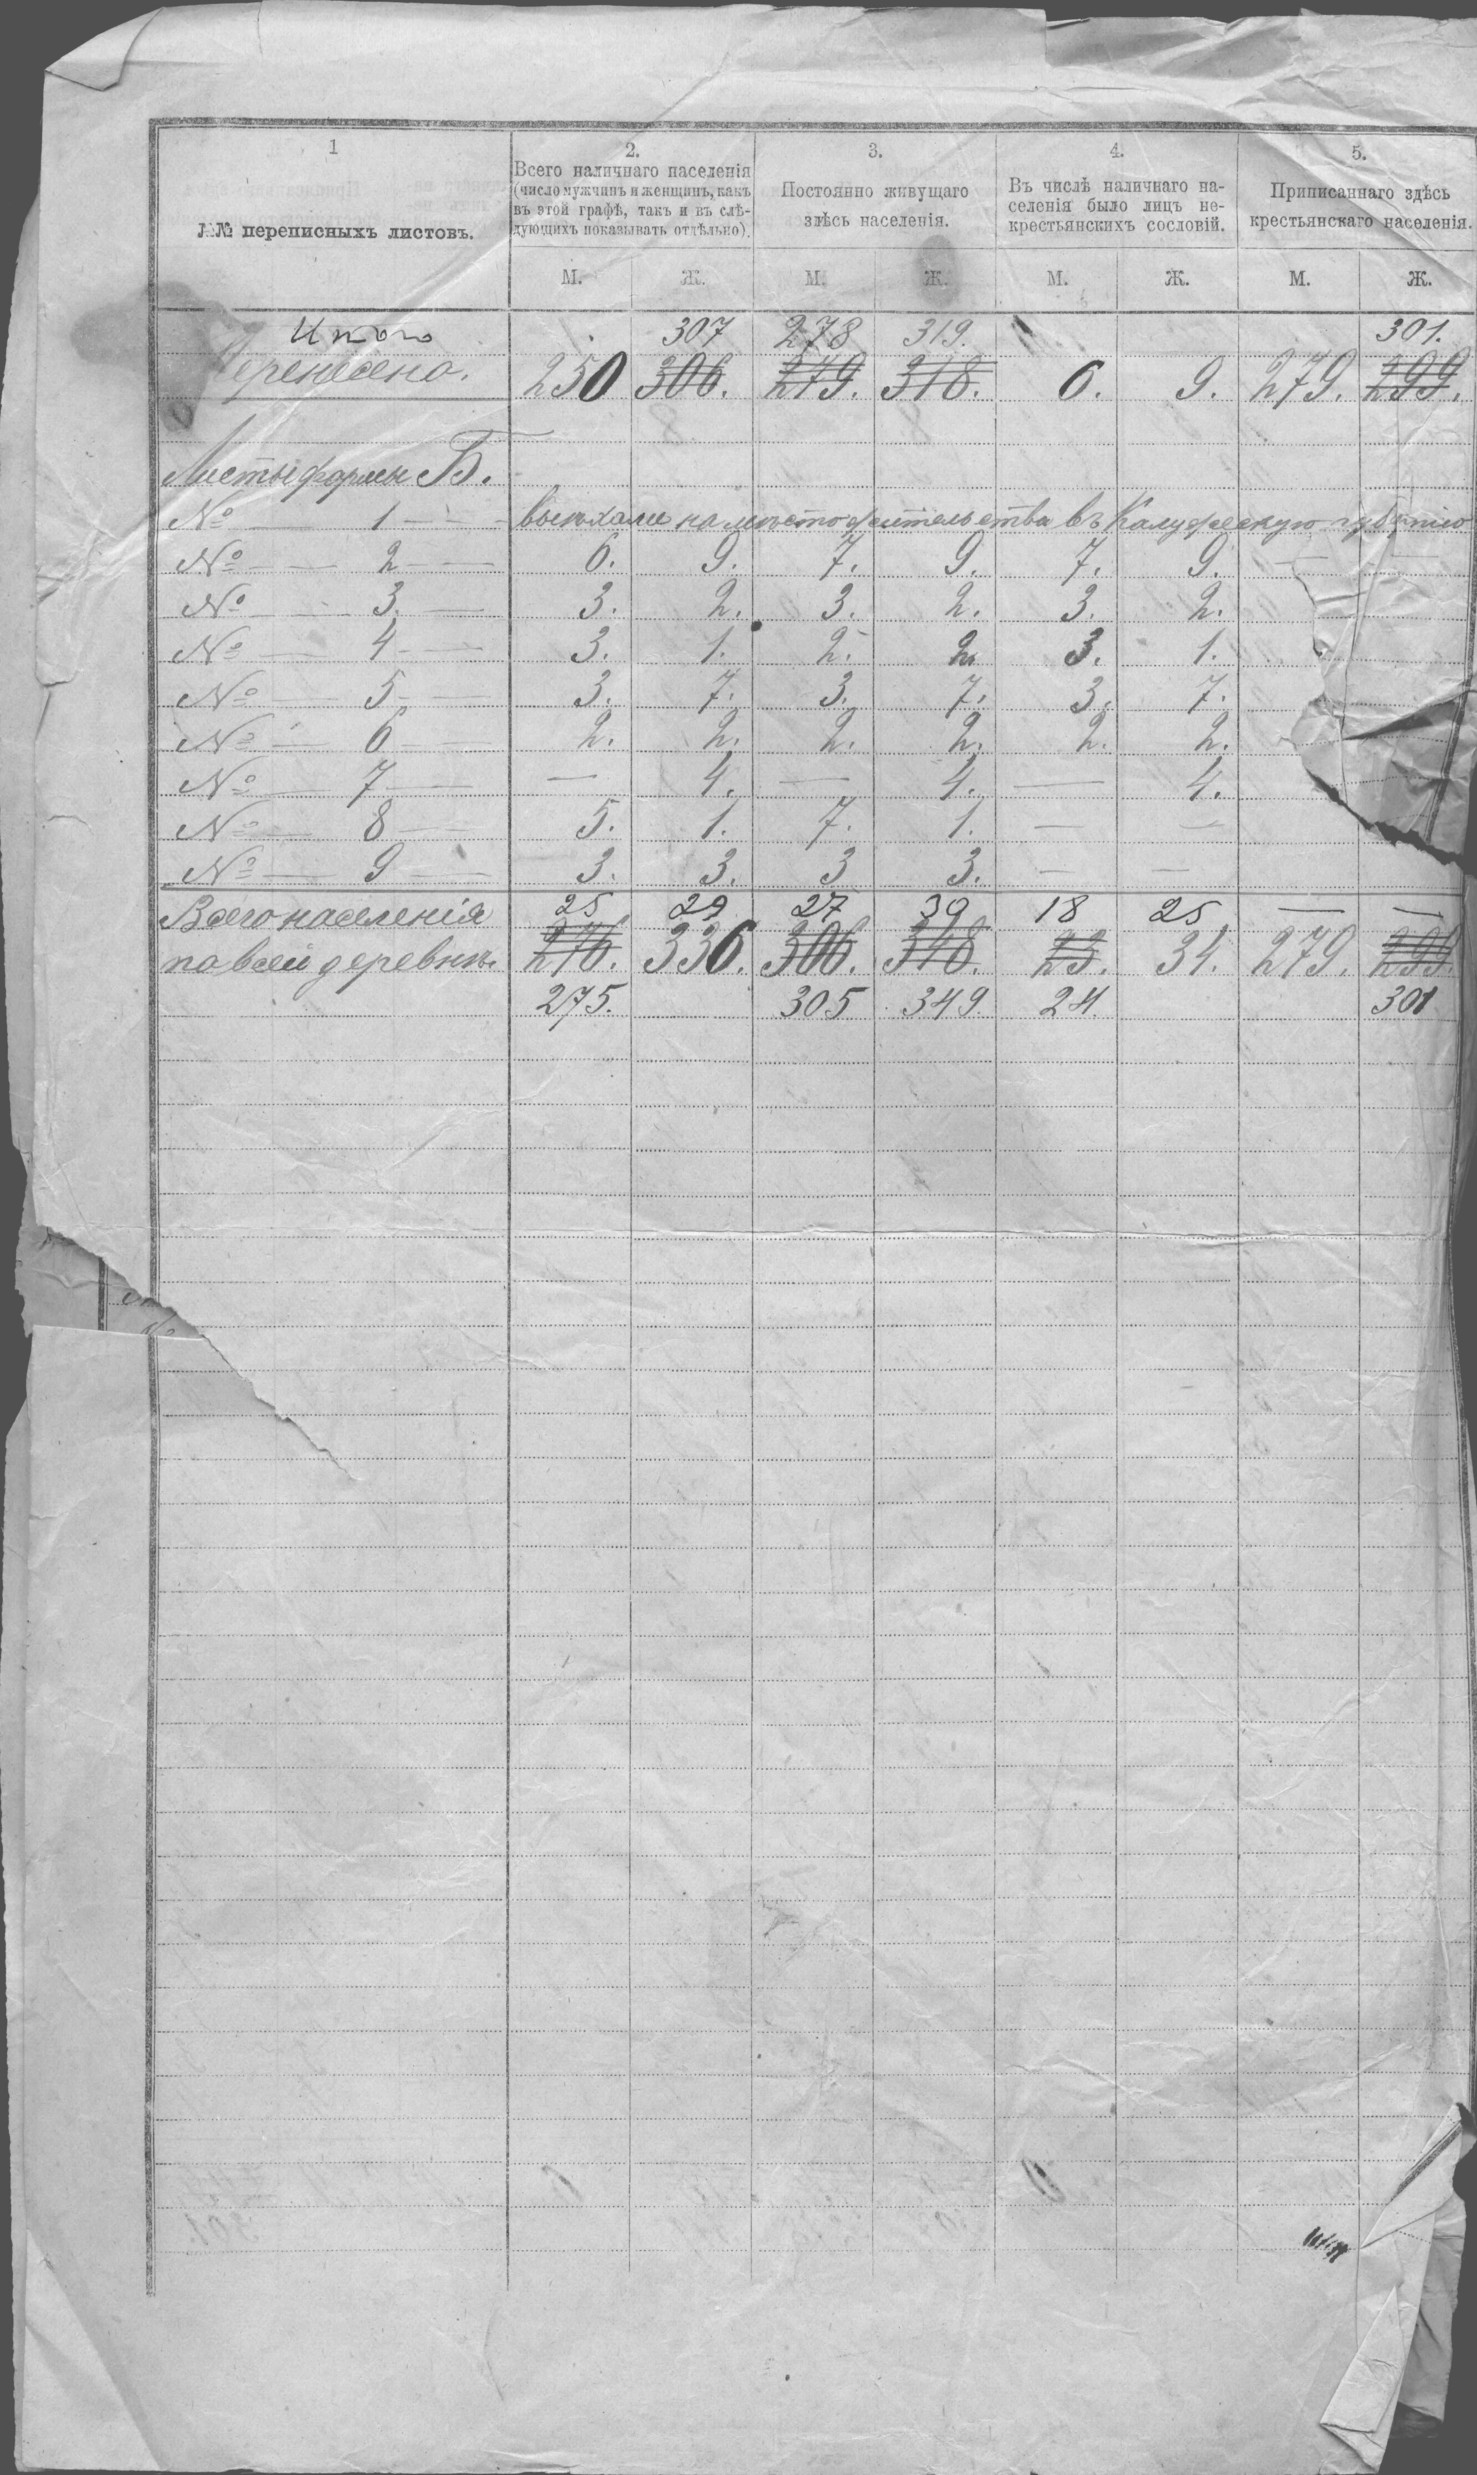 1 2. 3. 4. 5.
№№ переписныхъ листовъ.
Всего наличнаго населенія
(число мужчинъ и женщинъ, какъ
въ этой графѣ, такъ и въ слѣ-
дующихъ показывать отдѣльно).
Постоянно живущаго
здѣсь населенія.
Въ числѣ наличнаго на-
селенія было лицъ не-
крестьянскихъ сословій.
Приписаннаго здѣсь
крестьянскаго населенія.
М. Ж. М. Ж. М. Ж. М. Ж.
Итого 307 278 319. 301.
Перенесено. 250 306. 279. 318. 6. 9. 279. 299.
Листы формы Б.
№ — 1 — выѣхали на мѣстожительство въ Калужскую губернію
№ — 2 — 6. 9. 7. 9. 7. 9. — —
№ — 3. — 3. 2. 3. 2. 3. 2.
№ — 4 — 3. 1. 2. 2. 3. 1.
№ — 5 — 3. 7. 3. 7. 3. 7.
№ — 6 — 2. 2. 2. 2. 2. 2.
№ — 7 — — 4. — 4. — 4.
№ — 8 — 5. 1. 7. 1. — —
№ — 9 — 3. 3. 3 3. — —
Всего населенія 25 29 27 30 18 25 — —
по всей деревнѣ. 276. 336. 306. 348. 23. 34. 279. 299.
275. 305 349. 24. 301